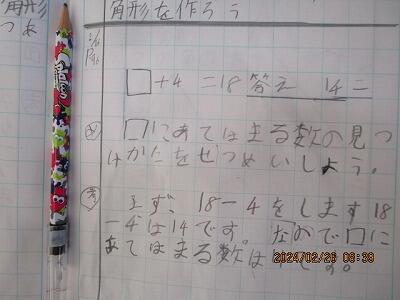 角形を作ろう
角形
つあ
2/26
P96
□+4=18 答え 14こ
め □にあてはまる数の見つ
けかたをせつめいしよう。
考 まず、18-4をします18
-4は14です。なので□に
あてはまる数は
です。
2024/02/26 08:39